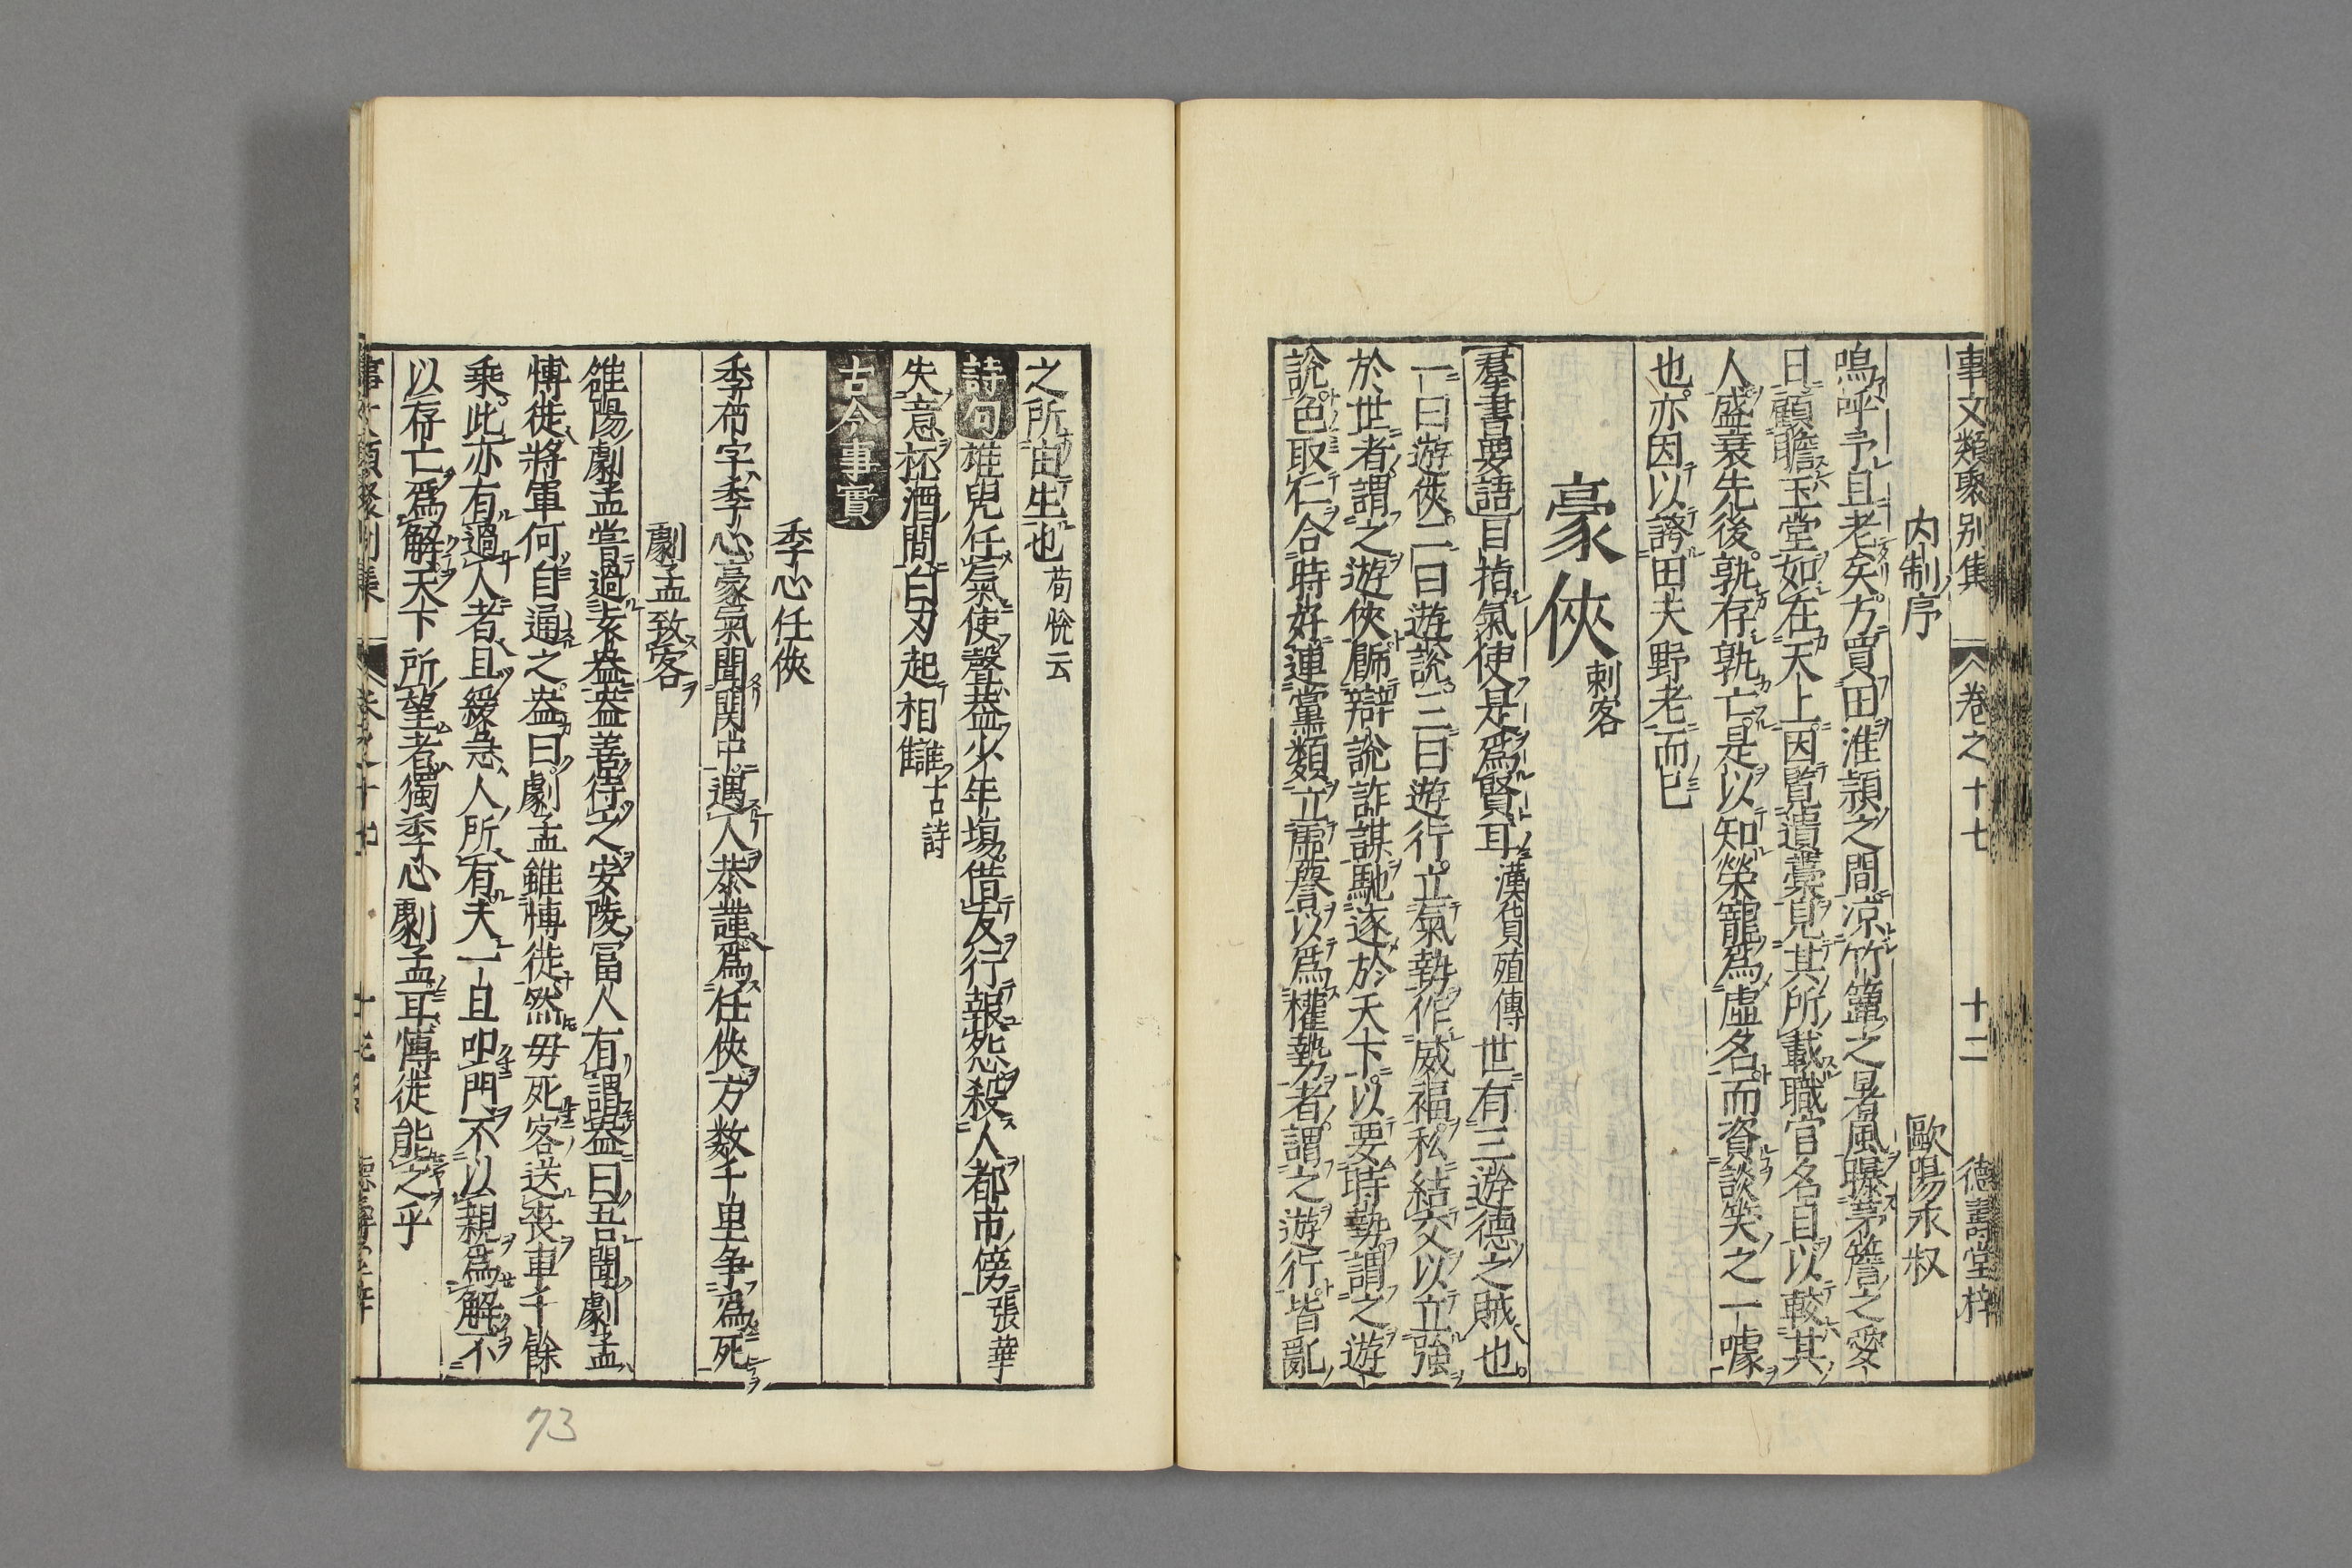 事文類聚别集 卷之十七 十二 德壽堂梓
内制序 歐陽永叔
嗚呼予且老矣方買田淮潁之間凉竹簟之暑風曝茅簷之愛
日顧瞻玉堂如在天上因覧遺藁見其所載職官名目以較其
人盛衰先後孰存孰亡是以知榮寵為虛名而資談笑之一噱
也亦因以誇田夫野老而已
豪俠 刺客
羣書要語 目指氣使是爲賢耳 漢貨殖傳 世有三遊德之賊也
一曰遊俠二曰遊說三曰遊行立氣勢作威福私結交以立強
於世者謂之遊俠餙辯說詐謀馳逐於天下以要時勢謂之遊
說色取仁合時好連黨類立虛譽以爲權勢者謂之遊行皆亂
之所由生也 荀悅云
詩句 雄兒任氣使聲葢少年塲借友行報怨殺人都市傍 張華
失意杯酒間白刃起相讎 古詩
古今事實
季心任俠
季布字季心豪氣聞関中遇人恭謹爲任俠方数千里争爲死
劇孟致客
雒陽劇孟嘗過袁盎盎善待之安陵冨人有謂盎曰吾聞劇孟
慱徙將軍何自通之盎曰劇孟雖慱徙然毋死客送喪車千餘
乘此亦有過人者且緩急人所有夫一旦叩門不以親爲解不
以存亡爲解天下所望者獨季心劇孟耳慱徙能之乎
73